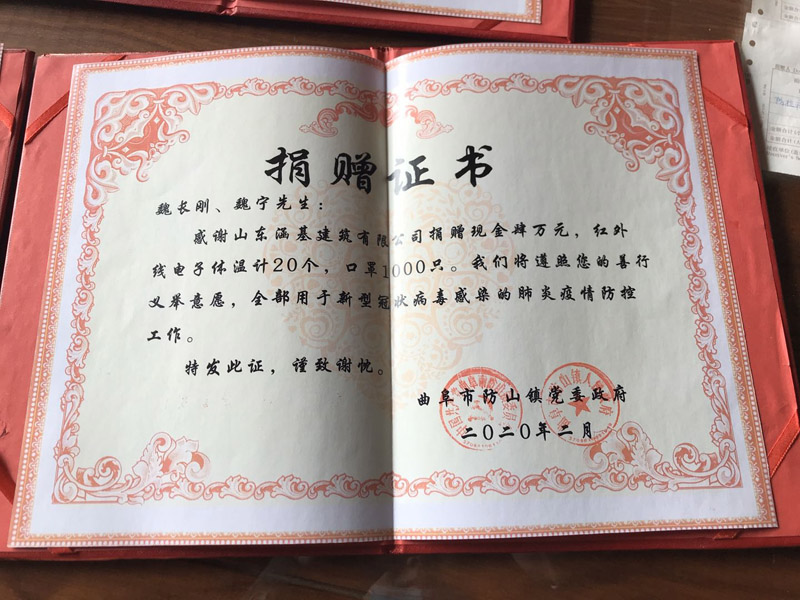 捐赠证书
魏长刚、魏宁先生：
感谢山东涵基建筑有限公司捐赠现金肆万元，红外
线电子体温计20个，口罩1000只。我们将遵照您的善行
义举意愿，全部用于新型冠状病毒感染的肺炎疫情防控
工作。
特发此证，谨致谢忱。
曲阜市防山镇党委政府
二〇二〇年二月